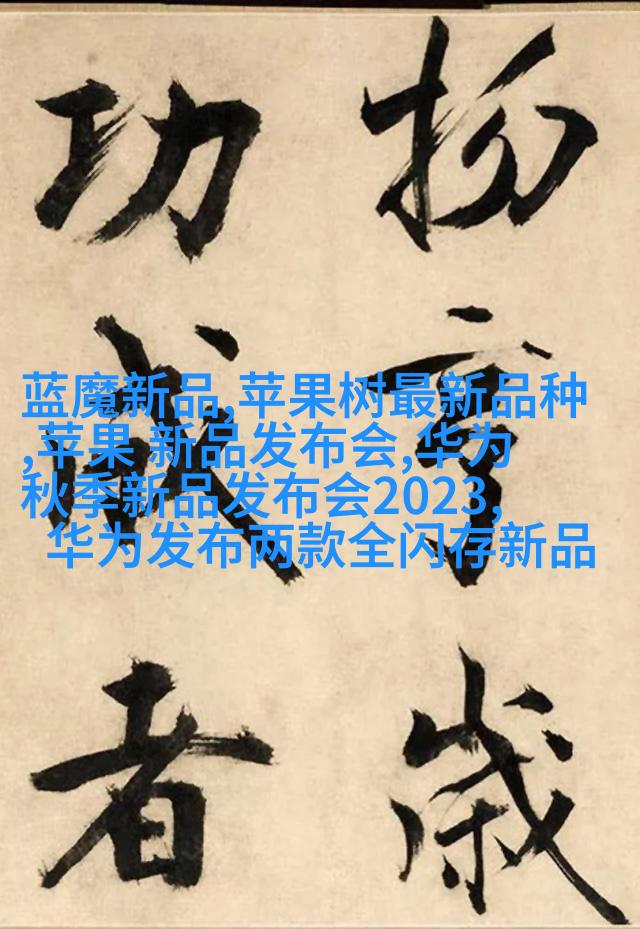 歲
功成者
蓝魔新品,苹果树最新品种
,苹果 新品发布会,华为
秋季新品发布会2023,
华为发布两款全闪存新品